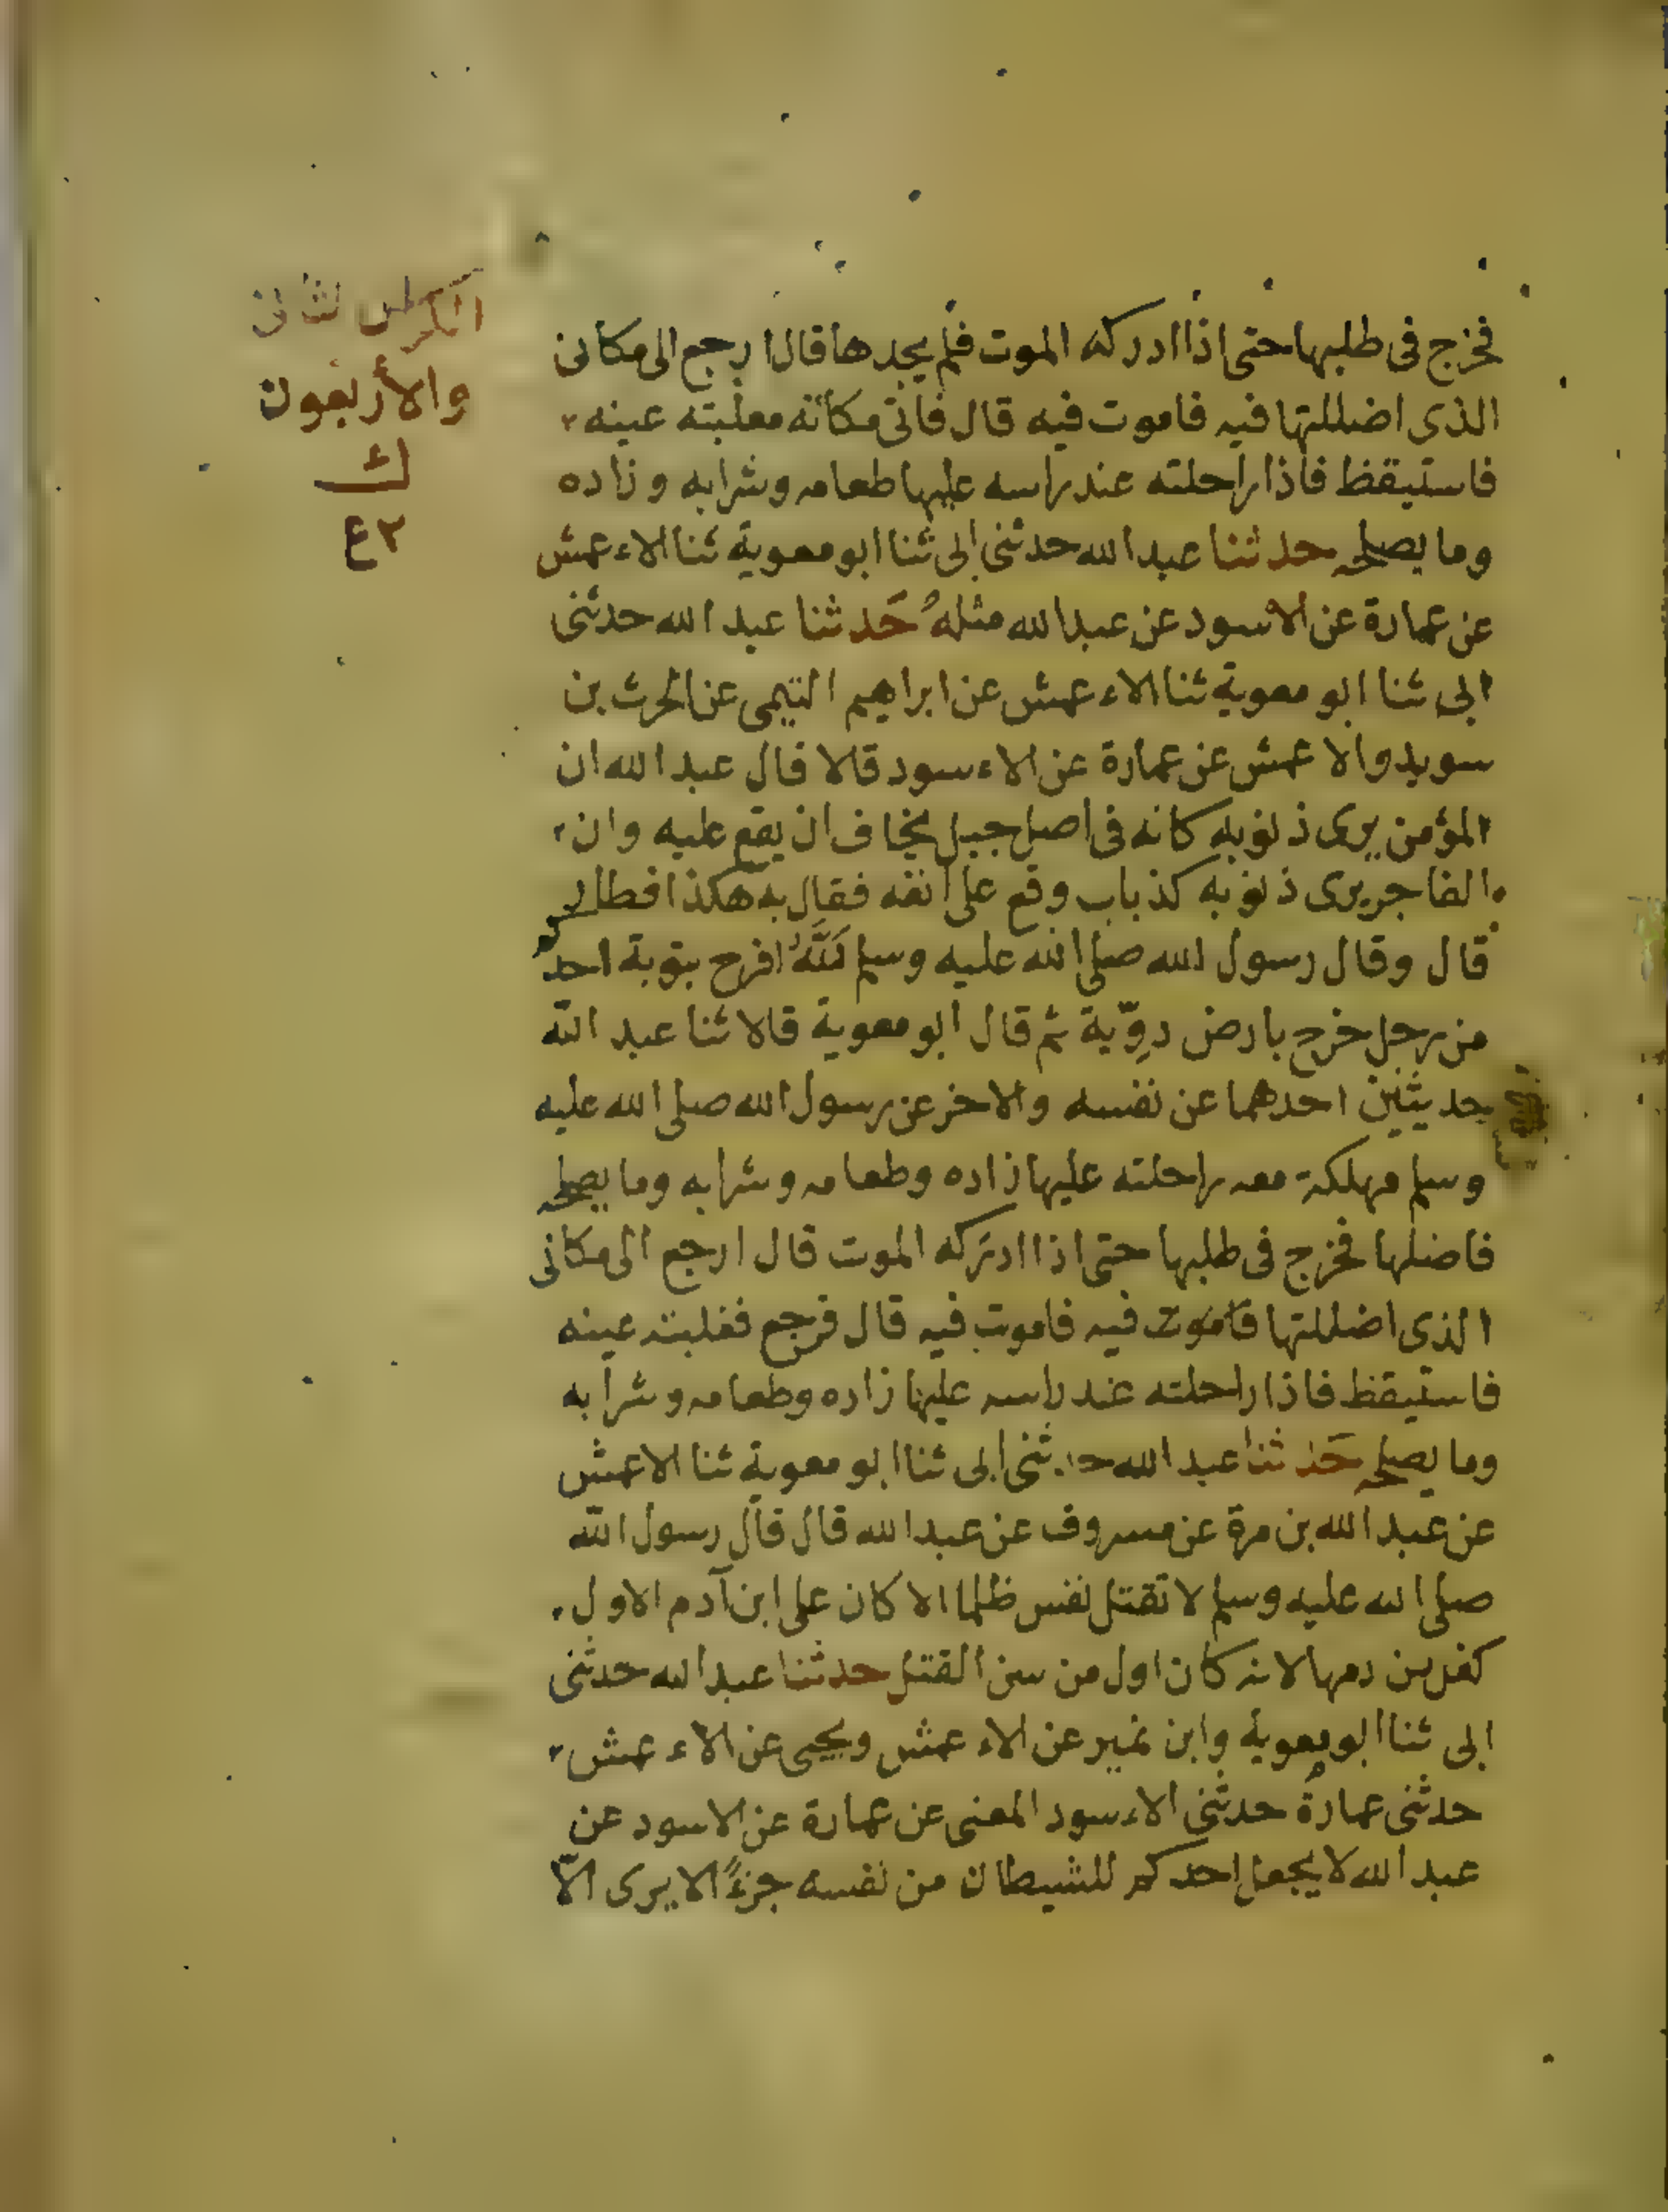 الكراس الثانى
والأربعون
ك
٤٢
فخرج فى طلبها حتى اذا ادركه الموت فلم يجدها قال ارجع الى مكانى
الذى اضللتها فيه فاموت فيه قال فاتى مكانه فغلبته عينه
فاستيقظ فاذا راحلته عند راسه عليها طعامه وشرابه وزاده
وما يصلحه حدثنا عبد الله حدثنى ابى ثنا ابو معوية ثنا الاعمش
عن عمارة عن الاسود عن عبد الله مثلهُ حَدثنا عبد الله حدثنى
ابى ثنا ابو معوية ثنا الاعمش عن ابراهيم التيمى عن الحرث بن
سويد والاعمش عن عمارة عن الاسود قالا قال عبد الله ان
المؤمن يرى ذنوبه كانه فى اصل جبل يخاف ان يقع عليه وان
الفاجر يرى ذنوبه كذباب وقع على انفه فقال به هكذا فطار
قال وقال رسول الله صلى الله عليه وسلم لَلَّهُ افرح بتوبة احدكم
من رجل خرج بارض دوِّية ثم قال ابو معوية قالا ثنا عبد الله
حديثين احدهما عن نفسه والاخر عن رسول الله صلى الله عليه
وسلم مهلكة معه راحلته عليها زاده وطعامه وشرابه وما يصلحه
فاضلها فخرج فى طلبها حتى اذا ادركه الموت قال ارجع الى مكانى
الذى اضللتها فاموت فيه فاموت فيه قال فرجع فغلبته عينه
فاستيقظ فاذا راحلته عند راسه عليها زاده وطعامه وشرابه
وما يصلحه حَدثنا عبد الله حدثنى ابى ثنا ابو معوية ثنا الاعمش
عن عبد الله بن مرة عن مسروق عن عبد الله قال قال رسول الله
صلى الله عليه وسلم لا تقتل نفس ظلما الا كان على ابن آدم الاول
كفل من دمها لانه كان اول من سن القتل حدثنا عبد الله حدثنى
ابى ثنا ابو معوية وابن نمير عن الاعمش ويحيى عن الاعمش
حدثنى عمارة حدثنى الاسود المعنى عن عمارة عن الاسود عن
عبد الله لا يجعل احدكم للشيطان من نفسه جزءًا لا يرى الّا